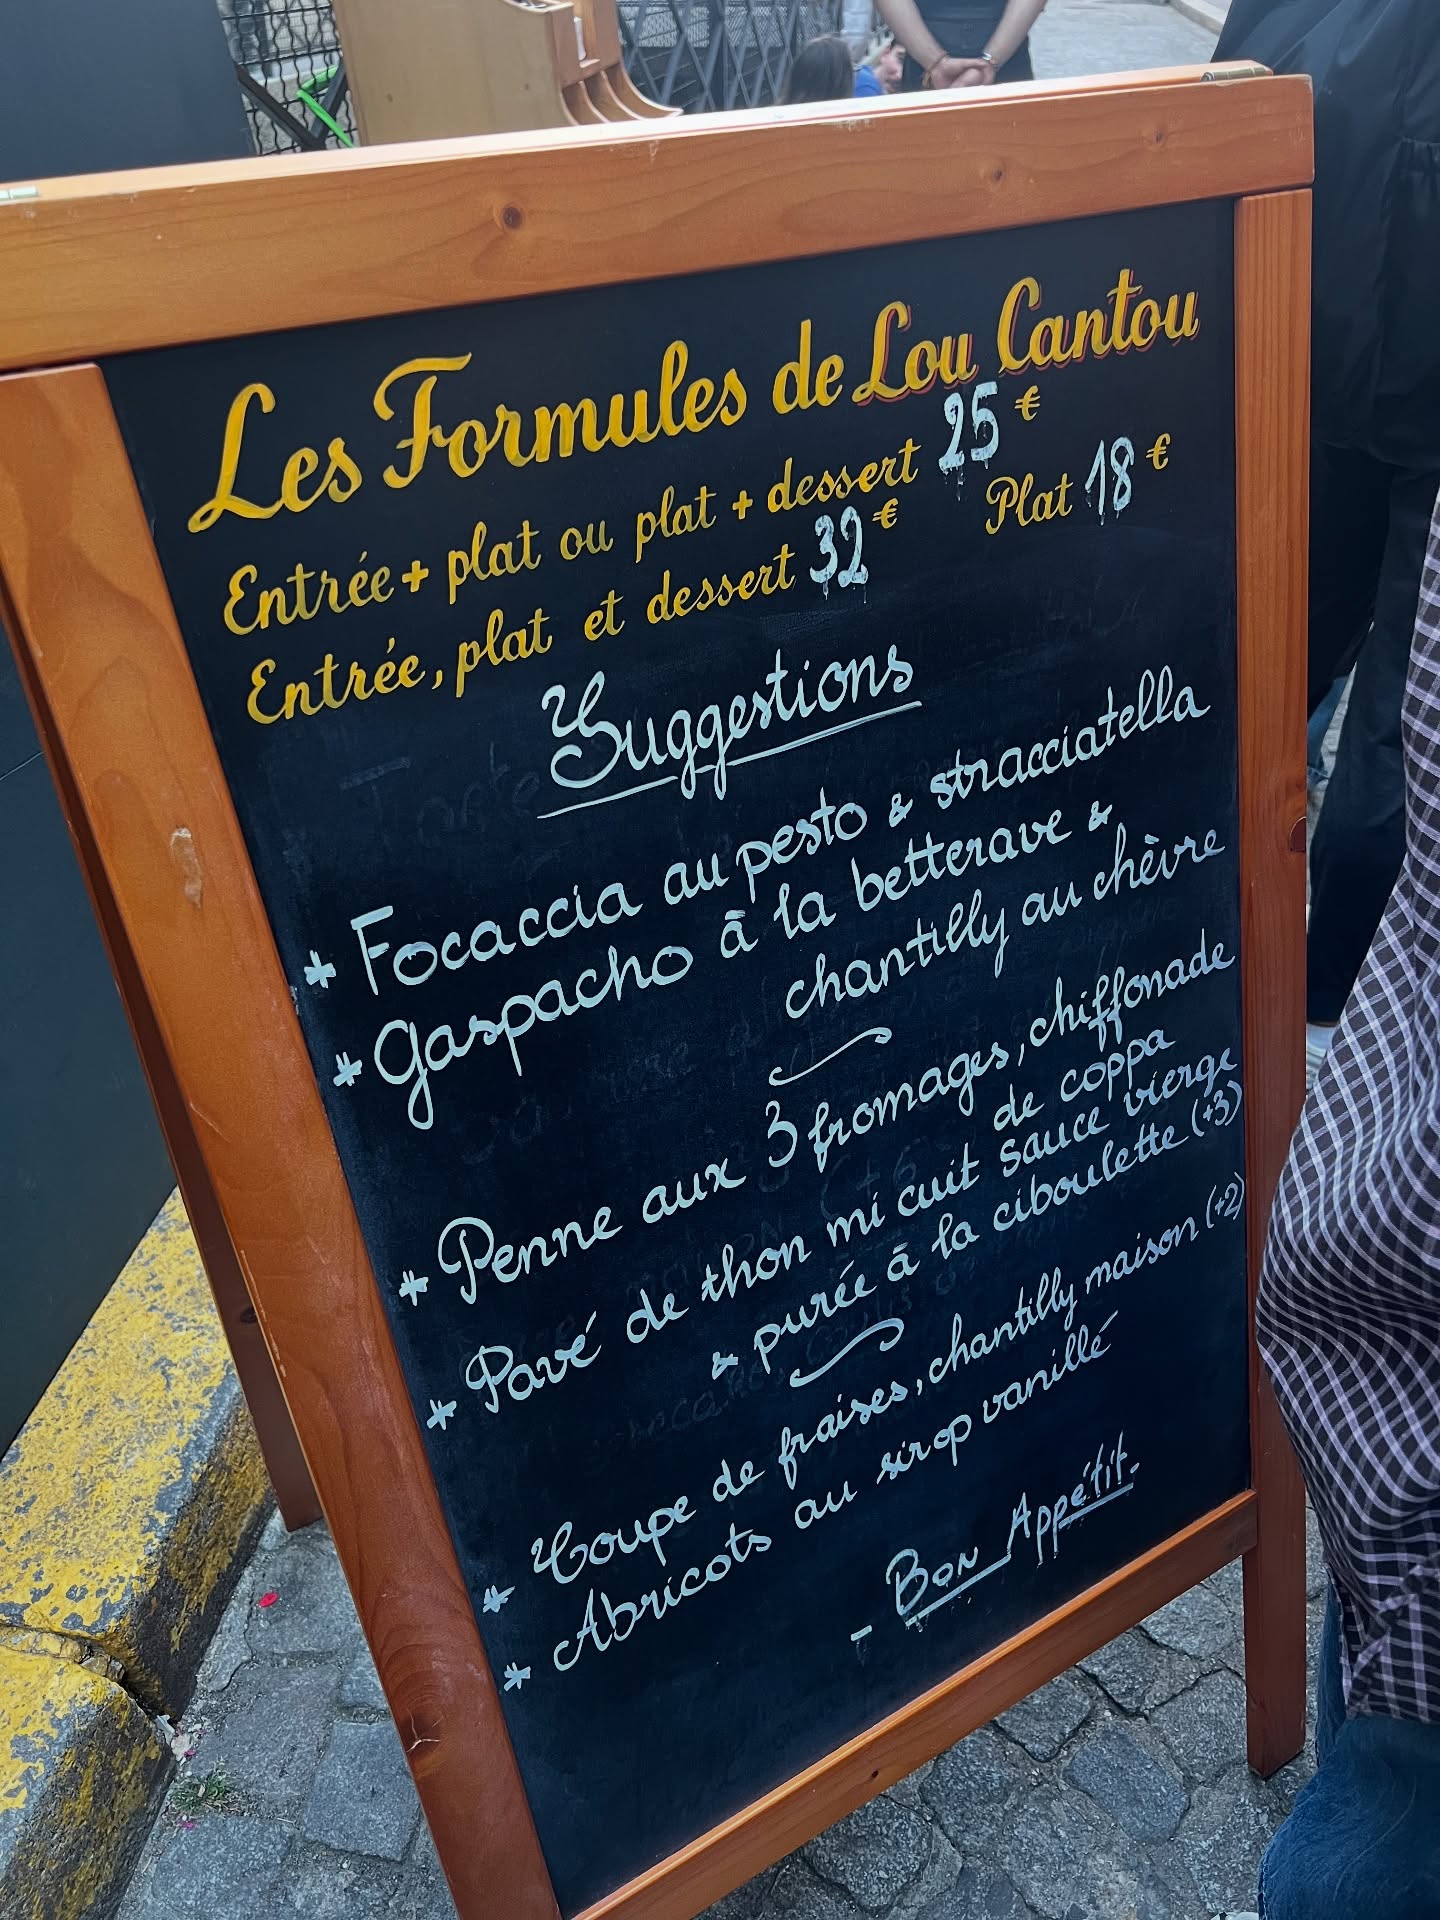 Les Formules de Lou Cantou
Entrée + plat ou plat + dessert 25 €
Entrée, plat et dessert 32 € Plat 18 €
Suggestions
* Focaccia au pesto & stracciatella
* Gaspacho à la betterave &
chantilly au chèvre
* Penne aux 3 fromages, chiffonade
de coppa
* Pavé de thon mi cuit sauce vierge
& purée à la ciboulette (+3)
* Coupe de fraises, chantilly maison (+2)
* Abricots au sirop vanillé
- Bon Appétit -